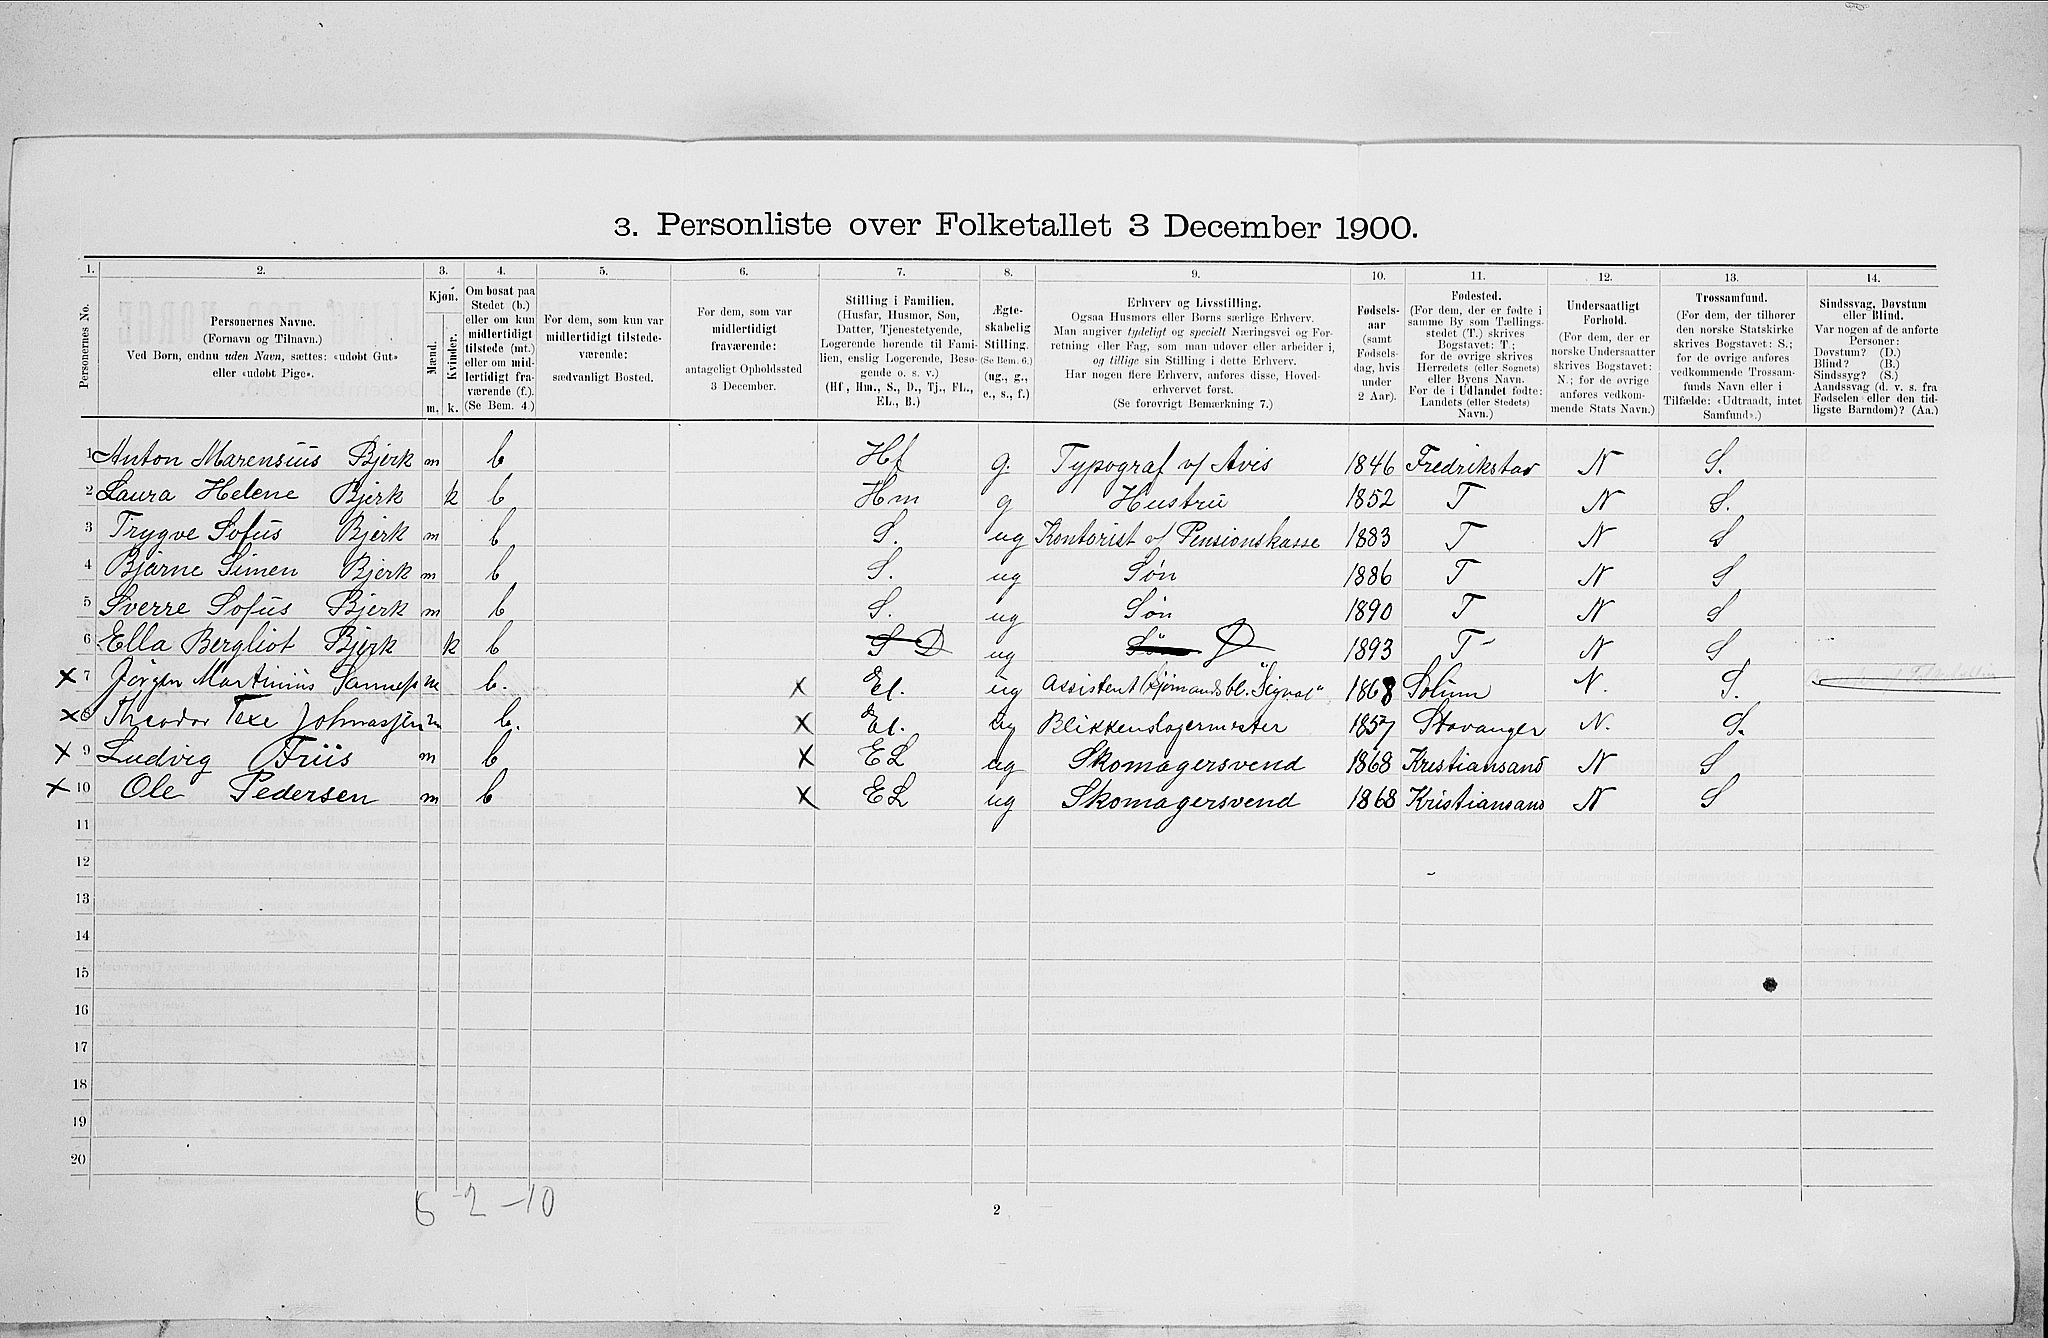 3. Personliste over Folketallet 3 December 1900.
1. 2. 3. 4. 5. 6. 7. 8. 9. 10. 11. 12. 13. 14.
Personernes No.
Personernes Navne.
(Fornavn og Tilnavn.)
Ved Børn, endnu uden Navn, sættes: «udøbt Gut»
eller «udøbt Pige».
Kjøn.
Mænd.
Kvinder.
m. k.
Om bosat paa
Stedet (b.)
eller om kun
midlertidigt
tilstede (mt.)
eller om mid-
lertidigt fra-
værende (f.).
(Se Bem. 4.)
For dem, som kun var
midlertidigt tilstede-
værende:
sædvanligt Bosted.
For dem, som var
midlertidigt
fraværende:
antageligt Opholdssted
3 December.
Stilling i Familien.
(Husfar, Husmor, Søn,
Datter, Tjenestetyende,
Logerende hørende til Fami-
lien, enslig Logerende, Besø-
gende o. s. v.)
(Hf., Hm., S., D., Tj., FL.,
EL., B.)
Ægte-
skabelig
Stilling.
(Se Bem. 6.)
(ug., g.,
e., s., f.)
Erhverv og Livsstilling.
Ogsaa Husmors eller Børns særlige Erhverv.
Man angiver tydeligt og specielt Næringsvei og For-
retning eller Fag, som man udøver eller arbeider i,
og tillige sin Stilling i dette Erhverv.
Har nogen flere Erhverv, anføres disse, Hoved-
erhvervet først.
(Se forøvrigt Bemærkning 7.)
Fødsels-
aar
(samt
Fødsels-
dag, hvis
under
2 Aar).
Fødested.
(For dem, der er fødte i
samme By som Tællings-
stedet (T.) skrives
Bogstavet: T;
for de øvrige skrives
Herredets (eller Sognets)
eller Byens Navn.
For de i Udlandet fødte:
Landets (eller Stedets)
Navn.)
Undersaatligt
Forhold.
(For dem, der er
norske Undersaatter
skrives Bogstavet:
N.; for de øvrige
anføres vedkom-
mende Stats Navn.)
Trossamfund.
(For dem, der tilhører
den norske Statskirke
skrives Bogstavet: S.;
for de øvrige anføres
vedkommende Trossam-
funds Navn eller i
Tilfælde: «Udtraadt, intet
Samfund».)
Sindssvag, Døvstum
eller Blind.
Var nogen af de anførte
Personer:
Døvstum? (D.)
Blind? (B.)
Sindssyg? (S.)
Aandssvag (d. v. s. fra
Fødselen eller den tid-
ligste Barndom)? (Aa.)
1 Anton Marensius Bjerk m b Hf g. Typograf v/ Avis 1846 Fredrikstad N S.
2 Laura Helene Bjerk k b Hm g Hustru 1852 T N S.
3 Trygve Sofus Bjerk m b S. ug Kontorist v/ Pensionskasse 1883 T N S
4 Bjarne Simen Bjerk m b S. ug Søn 1886 T N S
5 Sverre Sofus Bjerk m b S. ug Søn 1890 T N S
6 Ella Bergliot Bjerk k b S D ug Søn D 1893 T N S
x 7 Jörgen Martinius m b. x El. ug Assistent Sjømandsbl. "Sigval" 1868 Solum N. S.
x 8 Theodor m b. x El. ug Blikkenslagermester 1857 Stavanger N. S.
x 9 Ludvig Friis m b x EL ug Skomagersvend 1868 Kristiansand N S
x 10 Ole Pedersen m b x EL ug Skomagersvend 1868 Kristiansand N S
11
12
13
14
15
16
17
18
19
20
6 - 2 - 10
2